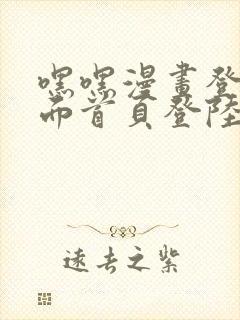 嘿嘿漫畫登
而首頁登陸
遠去之紫